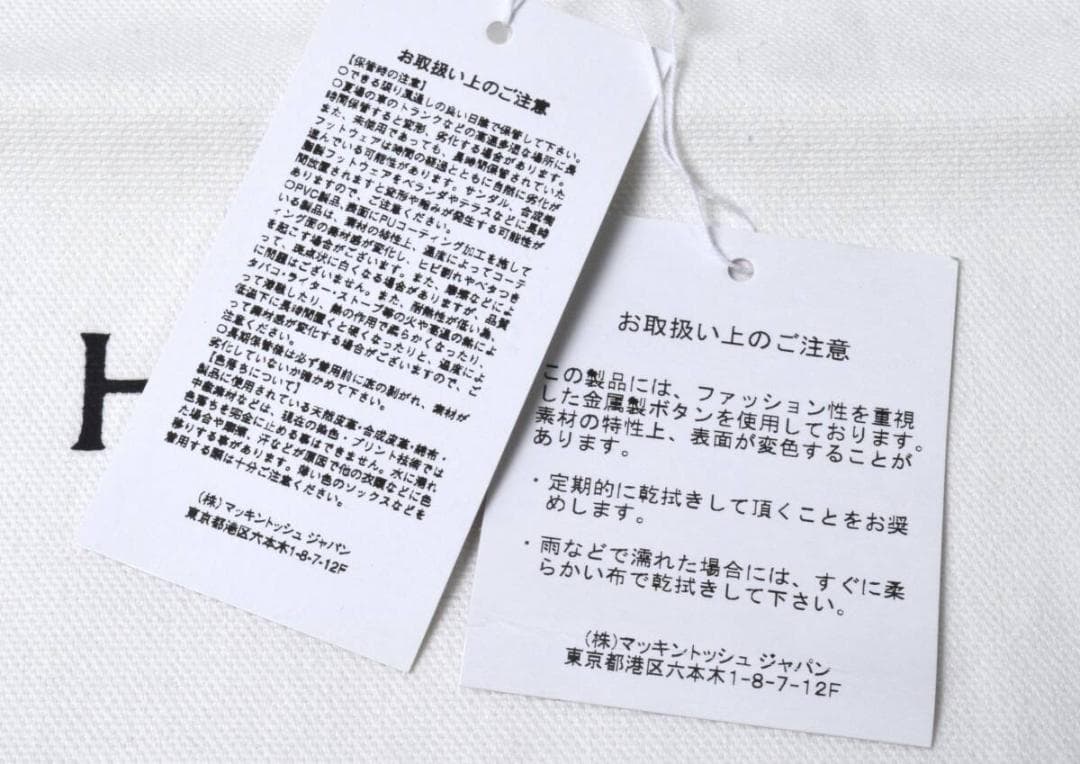 お取扱い上のご注意
【保管時の注意】
○できる限り風通しの良い日陰で保管して下さい。
○夏場の車のトランクなどの高温多湿な場所に長
時間保管すると変形、劣化する場合があります。
また、未使用であっても、長時間保管されていた
フットウェアは時間の経過とともに自然に劣化が
進んでいる可能性があります。サンダル、合成樹
脂製フットウェアをベランダやテラスなどに長時
間放置されますと変形や縮みが発生する可能性が
ありますので、ご注意ください。
○PVC製品、表面にPUコーティング加工を施して
いる製品は、素材の特性上、温度によってコーテ
ィング面の素材感が変化し、ヒビ割れやベタつき
を起こす場合がございます。また、摩擦などによ
って、斑点状に白くなる場合がありますが、品質
に問題はございません。また、耐熱性が低い為、
タバコ・ライター・ストーブ等の火や高温の熱によ
って溶融したり、熱の作用で柔らかくなったり、
低温下に長時間置くと硬くなったりと、温度によ
って素材感が変化する場合がございますので、ご
注意ください。
○長期保管後は必ず着用前に底の剥がれ、素材が
劣化していないか確かめて下さい。
【色落ちについて】
製品に使用されている天然皮革・合成皮革・綿布・
中敷素材などは、現在の染色・プリント技術では
色落ちを完全に止める事はできません。水に濡れ
た場合や摩擦、汗などが原因で他の衣類などに色
移りする事があります。薄い色のソックスなどを
着用する際は十分ご注意ください。
(株)マッキントッシュ ジャパン
東京都港区六本木1-8-7-12F
H
お取扱い上のご注意
この製品には、ファッション性を重視
した金属製ボタンを使用しております。
素材の特性上、表面が変色することが
あります。
・定期的に乾拭きして頂くことをお奨
めします。
・雨などで濡れた場合には、すぐに柔
らかい布で乾拭きして下さい。
(株)マッキントッシュ ジャパン
東京都港区六本木1-8-7-12F